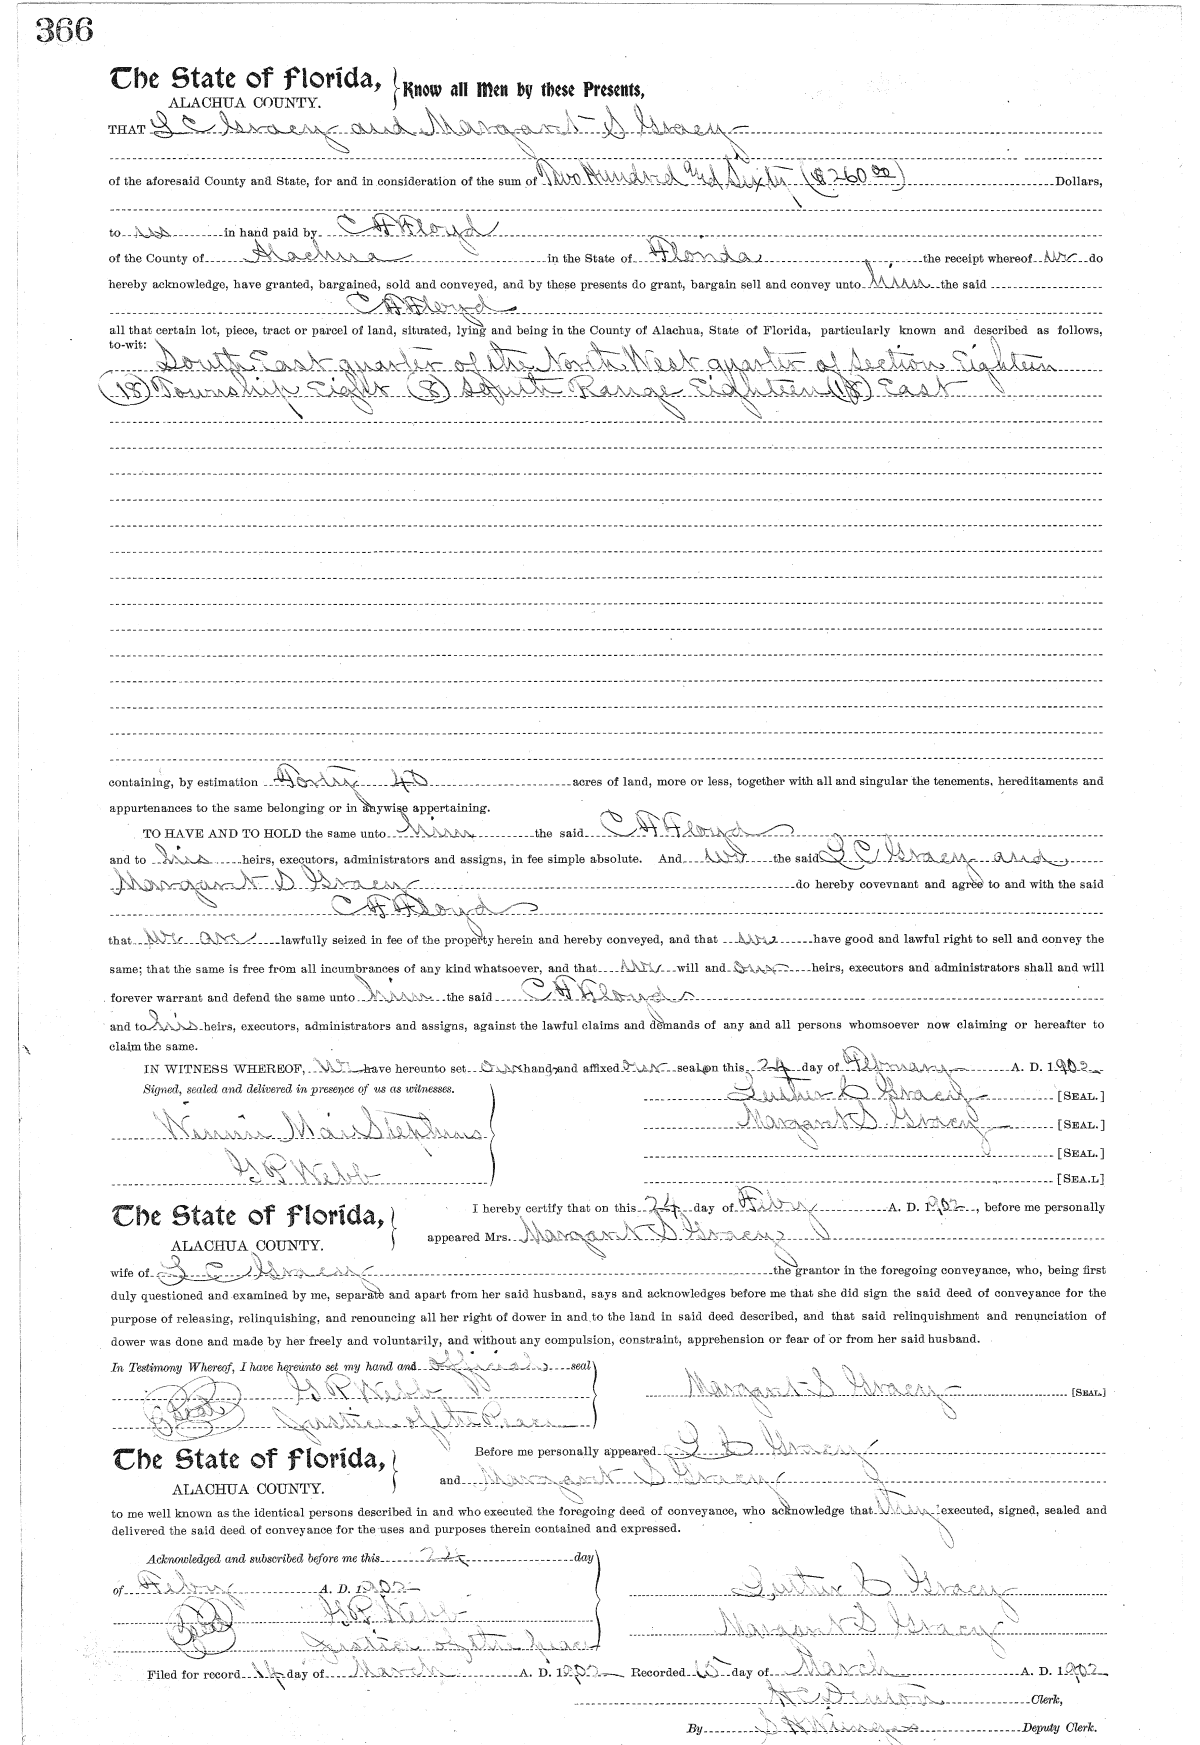 366
The State of Florida,
ALACHUA COUNTY.
Know all Men by these Presents,
THAT L C Gracy and Margaret S Gracy
of the aforesaid County and State, for and in consideration of the sum of Two Hundred and Sixty ($260.00) Dollars,
to us in hand paid by C A Floyd
of the County of Alachua in the State of Florida the receipt whereof we do
hereby acknowledge, have granted, bargained, sold and conveyed, and by these presents do grant, bargain sell and convey unto him the said
C A Floyd
all that certain lot, piece, tract or parcel of land, situated, lying and being in the County of Alachua, State of Florida, particularly known and described as follows,
to-wit:
South East quarter of the North West quarter of Section Eighteen
(18) Township Eight (8) South Range Eighteen (18) East
containing, by estimation Forty 40 acres of land, more or less, together with all and singular the tenements, hereditaments and
appurtenances to the same belonging or in anywise appertaining.
TO HAVE AND TO HOLD the same unto him the said C A Floyd
and to his heirs, executors, administrators and assigns, in fee simple absolute. And we the said L C Gracy and
Margaret S Gracy do hereby covevnant and agree to and with the said
C A Floyd
that we are lawfully seized in fee of the property herein and hereby conveyed, and that we have good and lawful right to sell and convey the
same; that the same is free from all incumbrances of any kind whatsoever, and that we will and our heirs, executors and administrators shall and will
forever warrant and defend the same unto him the said C A Floyd
and to his heirs, executors, administrators and assigns, against the lawful claims and demands of any and all persons whomsoever now claiming or hereafter to
claim the same.
IN WITNESS WHEREOF, We have hereunto set our hand and affixed our seal on this 24 day of February A. D. 1902
Signed, sealed and delivered in presence of us as witnesses.
Luther C Gracy [SEAL.]
Margaret S. Gracy [SEAL.]
Winnie Mai Stephens
[SEAL.]
G P Webb
[SEA.L]
The State of Florida,
ALACHUA COUNTY.
I hereby certify that on this 24 day of Feby A. D. 1902, before me personally
appeared Mrs. Margaret S Gracy
wife of L C Gracy the grantor in the foregoing conveyance, who, being first
duly questioned and examined by me, separate and apart from her said husband, says and acknowledges before me that she did sign the said deed of conveyance for the
purpose of releasing, relinquishing, and renouncing all her right of dower in and to the land in said deed described, and that said relinquishment and renunciation of
dower was done and made by her freely and voluntarily, and without any compulsion, constraint, apprehension or fear of or from her said husband.
In Testimony Whereof, I have hereunto set my hand and official seal
G P Webb
Margaret S Gracy [SEAL.]
(Seal) Justice of the Peace
The State of Florida,
ALACHUA COUNTY.
Before me personally appeared L C Gracy
and Margaret S Gracy
to me well known as the identical persons described in and who executed the foregoing deed of conveyance, who acknowledge that they executed, signed, sealed and
delivered the said deed of conveyance for the uses and purposes therein contained and expressed.
Acknowledged and subscribed before me this 24 day
of Feby A. D. 1902
Luther C Gracy
(Seal) G P Webb
Margaret S Gracy
Justice of the Peace
Filed for record 14 day of March A. D. 1902 Recorded 15 day of March A. D. 1902
H C Denton Clerk,
By S H Wienges Deputy Clerk.